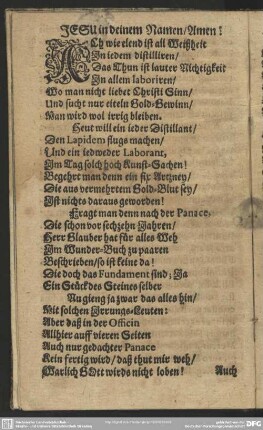 JESU in deinem Namen/Amen!
ACh wie elend ist all Weißheit
In iedem distilliren/
Das Thun ist lauter Nichtigkeit
In allem laboriren/
Wo man nicht liebet Christi Sinn/
Und sucht nur eiteln Gold-Gewinn/
Man wird wol irrig bleiben.
Heut will ein ieder Distillant/
Den Lapidem flugs machen/
Und ein iedweder Laborant,
Im Tag solch hoch Kunst-Sachen!
Begehrt man denn ein fix Artzney/
Die aus vermehrtem Gold-Blut sey/
Ist nichts daraus geworden!
Fragt man denn nach der Panace,
Die schon vor sechzehn Jahren/
Herr Glauber hat für alles Weh
Im Wunder-Buch zu paaren
Beschrieben/so ist keine da!
Die doch das Fundament sind; Ja
Ein Stück des Steines selber
Nu gieng ja zwar das alles hin/
Mit solchen Irrungs-Leuten:
Aber daß in der Officin
Allhier auff vieren Seiten
Auch nur gedachter Panace
Kein fertig wird/ daß thut mir weh/
Warlich GOtt wirds nicht loben!
Auch